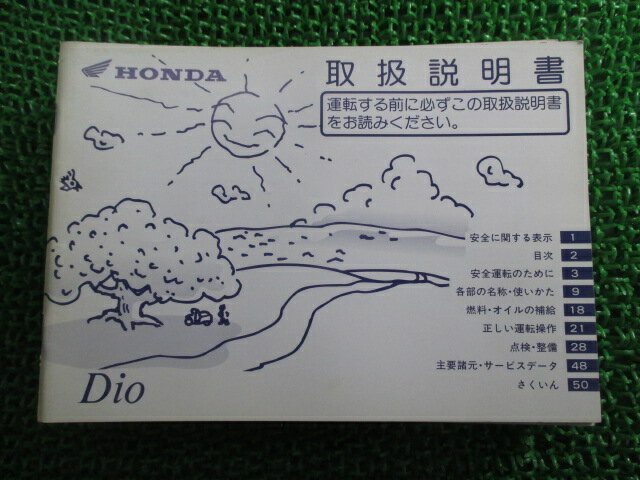 HONDA
取扱説明書
運転する前に必ずこの取扱説明書
をお読みください。
安全に関する表示 1
目次 2
安全運転のために 3
各部の名称・使いかた 9
燃料・オイルの補給 18
正しい運転操作 21
点検・整備 28
主要諸元・サービスデータ 48
さくいん 50
Dio